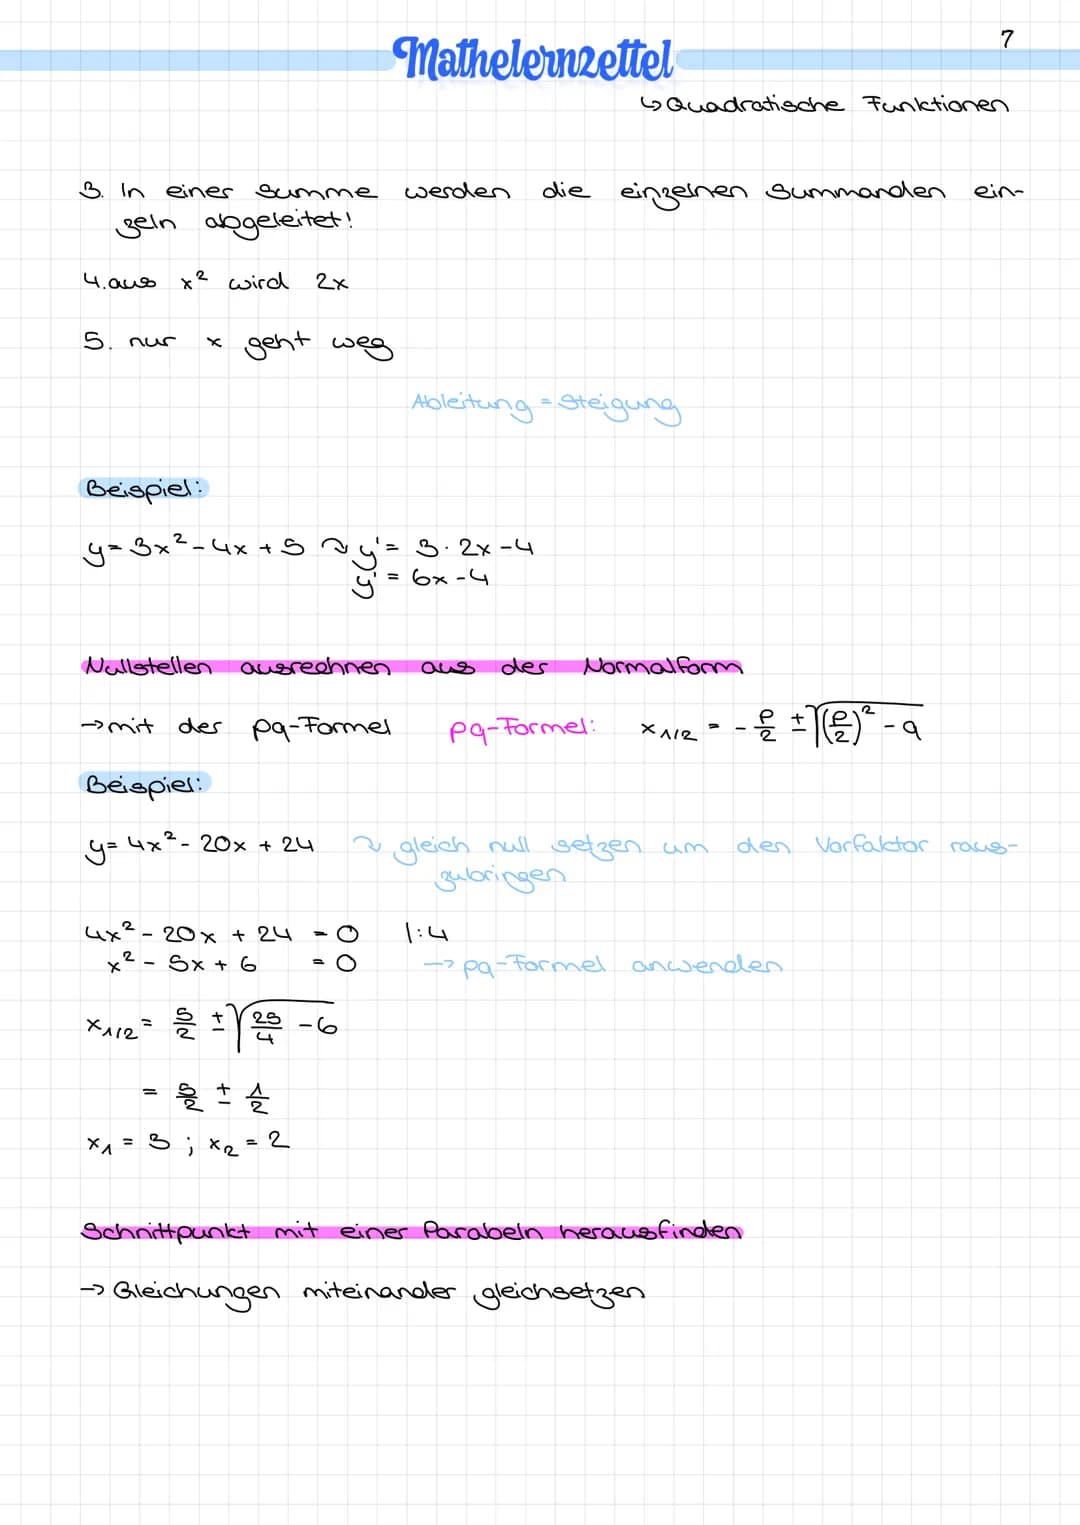 Mathelernzettel
7
↳ Quadratische Funktionen
3. In einer Summe werden die einzelnen Summanden ein-
zeln abgeleitet!
4. aus x² wird 2x
5. nur x geht weg
Ableitung = Steigung
Beispiel:
y = 3x² - 4x + 5 ⤳ y' = 3 · 2x - 4
y' = 6x - 4
Nullstellen ausrechnen aus der Normalform
→ mit der pq-Formel pq-Formel: x₁/₂ = - p/2 ± √((p/2)² - q)
Beispiel:
y = 4x² - 20x + 24 ⤳ gleich null setzen um den Vorfaktor raus-
zubringen
4x² - 20x + 24 = 0 |:4
x² - 5x + 6 = 0 → pq-Formel anwenden
x₁/₂ = 5/2 ± √(25/4 - 6)
= 5/2 ± 1/2
x₁ = 3 ; x₂ = 2
Schnittpunkt mit einer Parabeln herausfinden
→ Gleichungen miteinander gleichsetzen